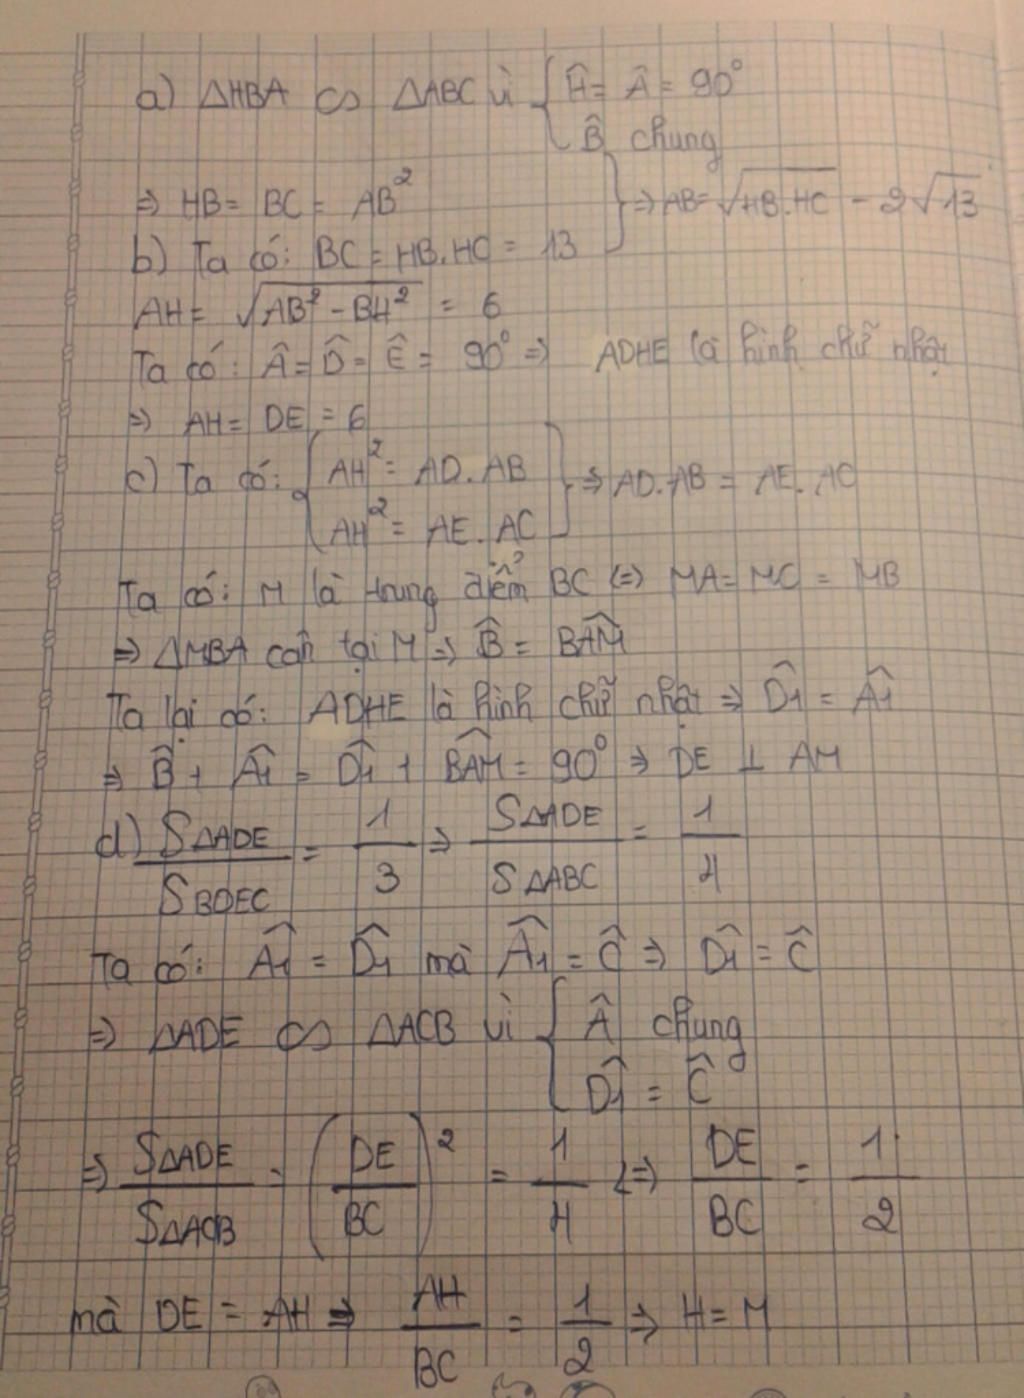 a) ΔHBA ∽ ΔABC vì { Ĥ = Â = 90°
B̂ chung
⇒ HB = BC = AB² } ⇒ AB = √HB.HC = 2√13
b) Ta có: BC = HB.HC = 13
AH = √AB² - BH² = 6
Ta có: Â = D̂ = Ê = 90° ⇒ ADHE là hình chữ nhật
⇒ AH = DE = 6
c) Ta có: { AH² = AD.AB
AH² = AE.AC } ⇒ AD.AB = AE.AC
Ta có: M là trung điểm BC ⇔ MA = MC = MB
⇒ ΔMBA cân tại M ⇒ B̂ = BAM̂
Ta lại có: ADHE là hình chữ nhật ⇒ D̂1 = Â1
⇒ B̂ + Â1 = D̂1 + BAM̂ = 90° ⇒ DE ⊥ AM
d) SΔADE / SBDEC = 1/3 ⇒ SΔADE / SΔABC = 1/4
Ta có: Â1 = D̂1 mà Â1 = Ĉ ⇒ D̂1 = Ĉ
⇒ ΔADE ∽ ΔACB vì { Â chung
D̂1 = Ĉ
⇒ SΔADE / SΔACB = (DE/BC)² = 1/4 ⇔ DE/BC = 1/2
mà DE = AH ⇒ AH/BC = 1/2 ⇒ H = M